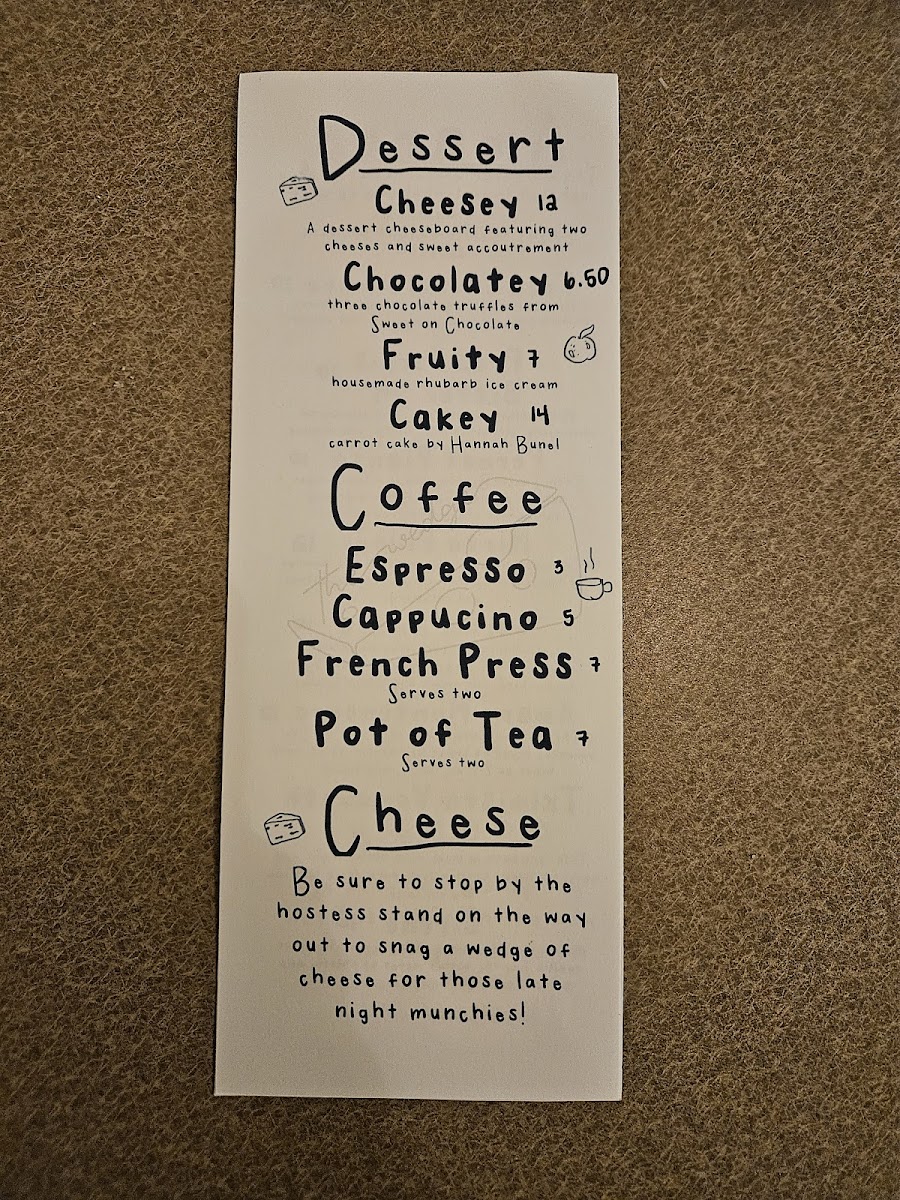 Dessert
Cheesey 12
A dessert cheeseboard featuring two
cheeses and sweet accoutrement
Chocolatey 6.50
three chocolate truffles from
Sweet on Chocolate
Fruity 7
housemade rhubarb ice cream
Cakey 14
carrot cake by Hannah Bunel
Coffee
Espresso 3
Cappucino 5
French Press 7
Serves two
Pot of Tea 7
Serves two
Cheese
Be sure to stop by the
hostess stand on the way
out to snag a wedge of
cheese for those late
night munchies!